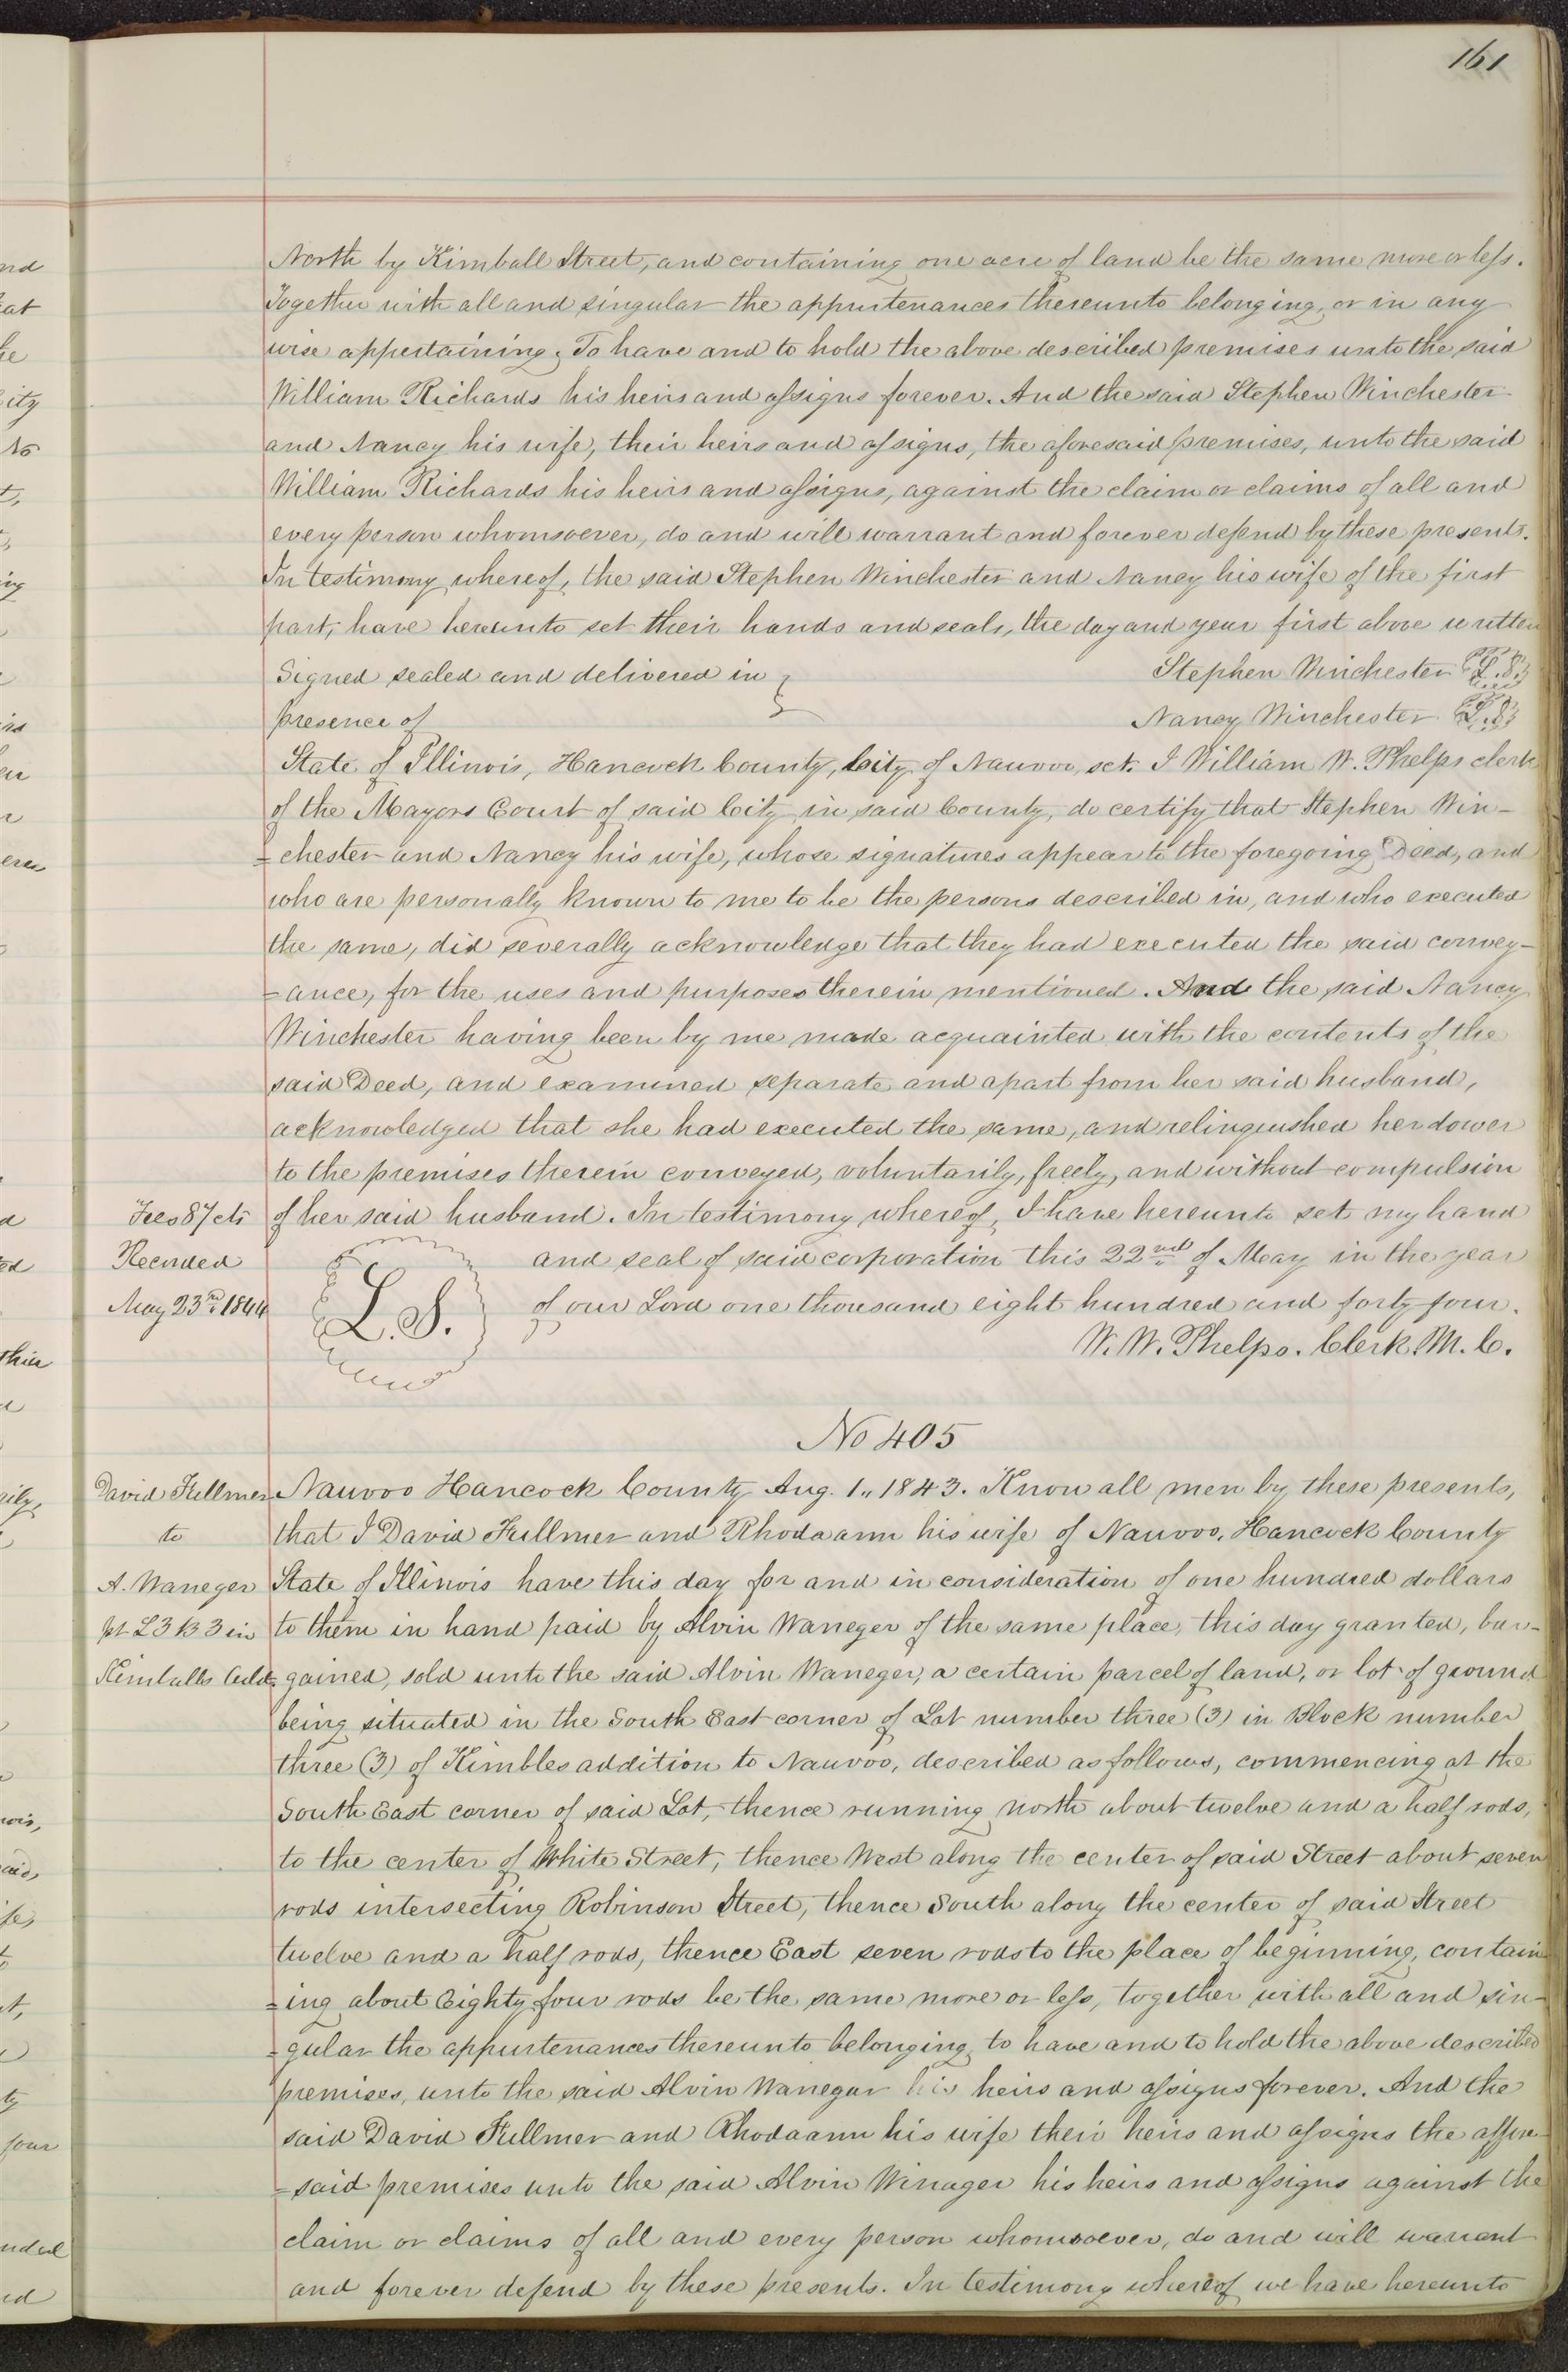 161
North by Kimball Street, and containing one acre of land be the same more or less.
Together with all and singular the appurtenances thereunto belonging, or in any
wise appertaining, To have and to hold the above described premises unto the said
William Richards his heirs and assigns forever. And the said Stephen Winchester
and Nancy his wife, their heirs and assigns, the aforesaid premises, unto the said
William Richards his heirs and assigns, against the claim or claims of all and
every person whomsoever, do and will warrant and forever defend by these presents.
In testimony whereof, the said Stephen Winchester and Nancy his wife of the first
part, have hereunto set their hands and seals, the day and year first above written
Signed sealed and delivered in } Stephen Winchester L.S.
presence of Nancy Winchester L.S.
State of Illinois, Hancock County, City of Nauvoo, sct. I William W. Phelps clerk
of the Mayors Court of said City in said County, do certify that Stephen Win-
=chester and Nancy his wife, whose signatures appear to the foregoing Deed, and
who are personally known to me to be the persons described in, and who executed
the same, did severally acknowledge that they had executed the said convey-
=ance, for the uses and purposes therein mentioned. And the said Nancy
Winchester having been by me made acquainted with the contents of the
said Deed, and examined separate and apart from her said husband,
acknowledged that she had executed the same, and relinquished her dower
to the premises therein conveyed, voluntarily, freely, and without compulsion
Fees 87 cts of her said husband. In testimony whereof, I have hereunto set my hand
Recorded and seal of said corporation this 22nd of May in the year
May 23rd 1844 L.S. of our Lord one thousand eight hundred and forty four.
W. W. Phelps. Clerk M. C.
No 405
David Fullmer Nauvoo Hancock County Aug. 1., 1843. Know all men by these presents,
to that I David Fullmer and Rhodaann his wife of Nauvoo, Hancock County
A. Waneger State of Illinois have this day for and in consideration of one hundred dollars
pt L 3 B 3 in to them in hand paid by Alvin Waneger of the same place, this day granted, bar-
Kimballs Add. gained, sold unto the said Alvin Waneger, a certain parcel of land, or lot of ground
being situated in the South East corner of Lot number three (3) in Block number
three (3) of Kimbles addition to Nauvoo, described as follows, commencing at the
South East corner of said Lot, thence running north about twelve and a half rods,
to the center of White Street, thence West along the center of said Street about seven
rods intersecting Robinson Street, thence South along the center of said Street
twelve and a half rods, thence East seven rods to the place of beginning, contain
=ing about Eighty four rods be the same more or less, together with all and sin-
=gular the appurtenances thereunto belonging, to have and to hold the above described
premises, unto the said Alvin Wanegar his heirs and assigns forever. And the
said David Fullmer and Rhodaann his wife their heirs and assigns the affore-
=said premises unto the said Alvin Winager his heirs and assigns against the
claim or claims of all and every person whomsoever, do and will warrant
and forever defend by these presents. In testimony whereof we have hereunto